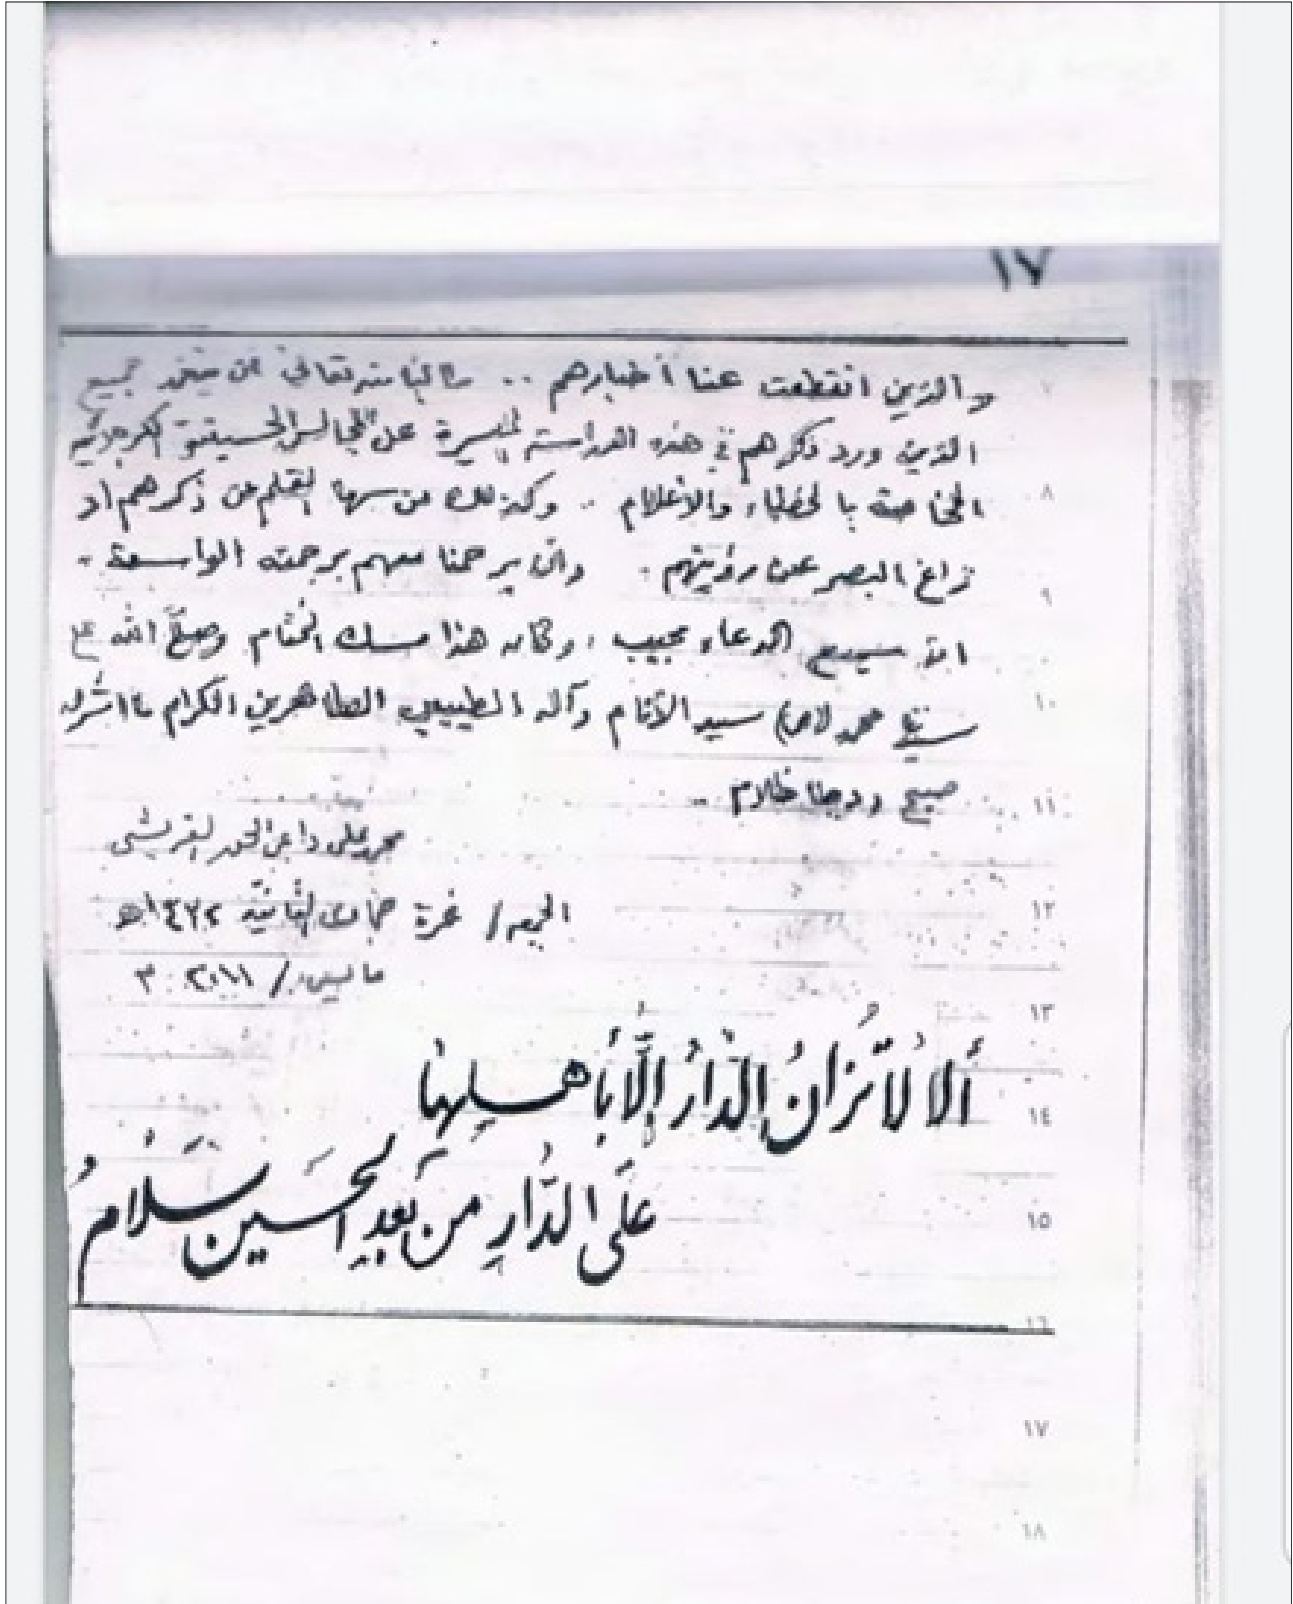 ١٧
والذين انقطعت عنا أخبارهم .. طالبا منه تعالى ان يتغمد جميع
الذين ورد ذكرهم في هذه الدراسة الميسرة عن المجالس الحسينية الكربلائية
الخاصة بالخطباء والأعلام .. وكذلك من سها القلم عن ذكرهم او
زاغ البصر عن رؤيتهم . وان يرحمنا معهم برحمته الواسعة .
انه سميع الدعاء مجيب ، وكان هذا مسك الختام وصلى الله على
محمد (ص) سيد الأنام وآله الطيبين الطاهرين الكرام ما اشرق
صبح ودجا ظلام ..
محمد علي داعي الحق القريشي
الجمعه / غرة جمادى الثانية ١٤٣٢هـ
مايس / ٢٠١١ م
٧
٨
٩
١٠
١١
١٢
١٣
أَلا لا تُزانُ الدّارُ إلّا بأهلِها
١٤
عَلَى الدّارِ مِن بَعدِ الحسَين سَلامُ
١٥
١٦
١٧
١٨